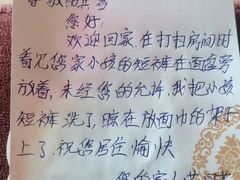 尊敬的宾客
您好:
欢迎回家.在打扫房间时
看见您家小孩的短裤在面盆旁
放着,未经您的允许.我把小孩
短裤洗了,晾在放面巾的架子
上了.祝您居住愉快
您的家人